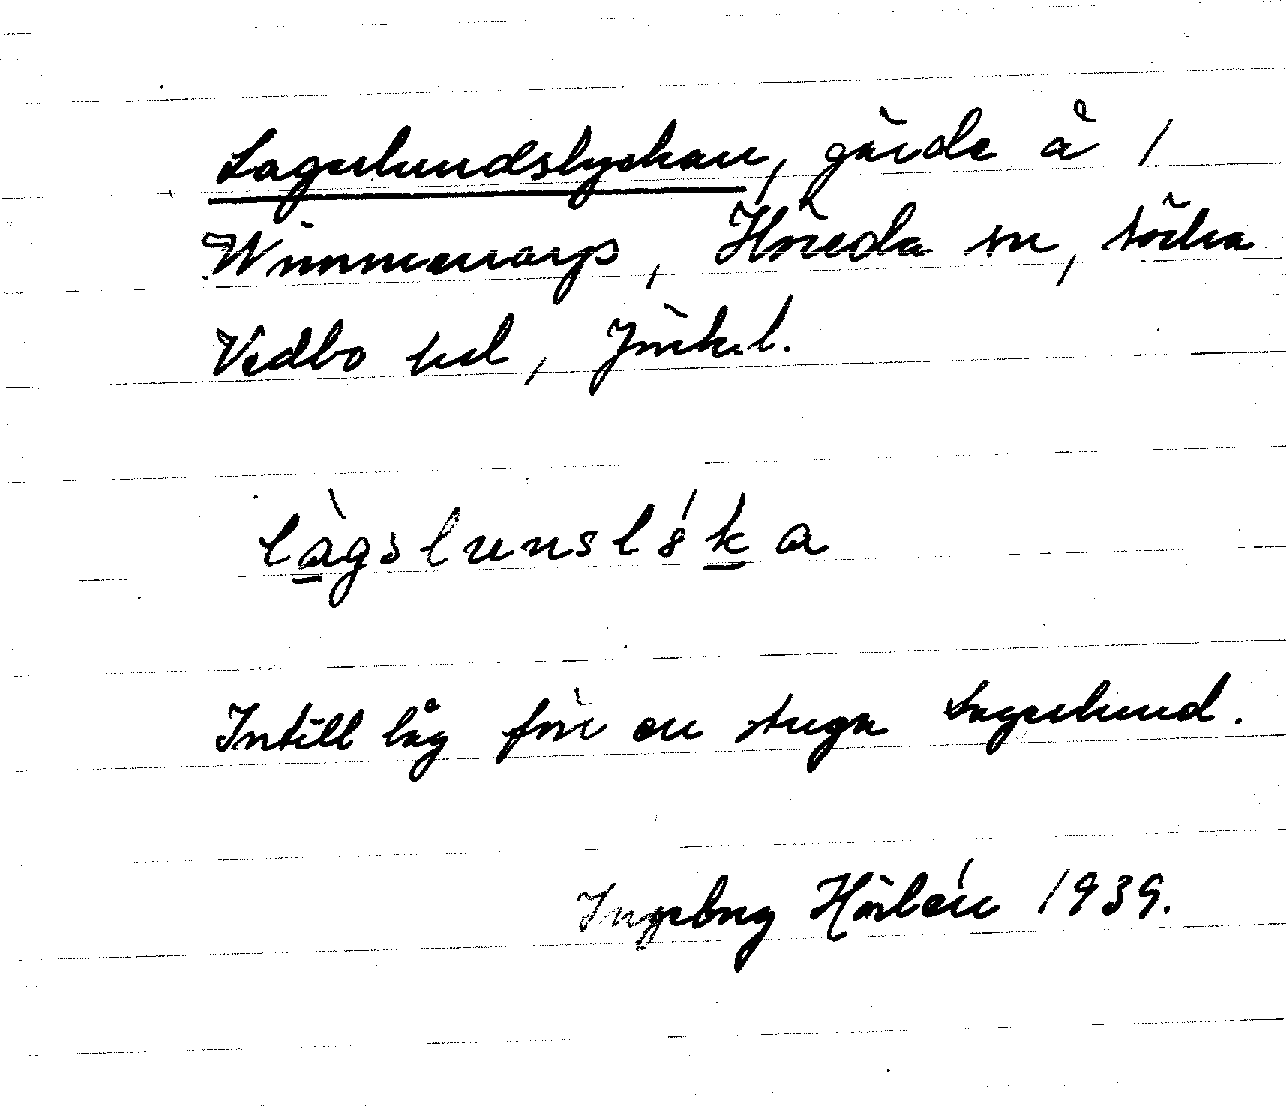 Lagerlundslyckan, gärde å 1
Wimmerarp, Höreda sn, södra
Vedbo hd, Jönk.l.
làgslunsl8́ka
Intill låg förr en stuga Lagerlund.
Ingeborg Hörlén 1939.